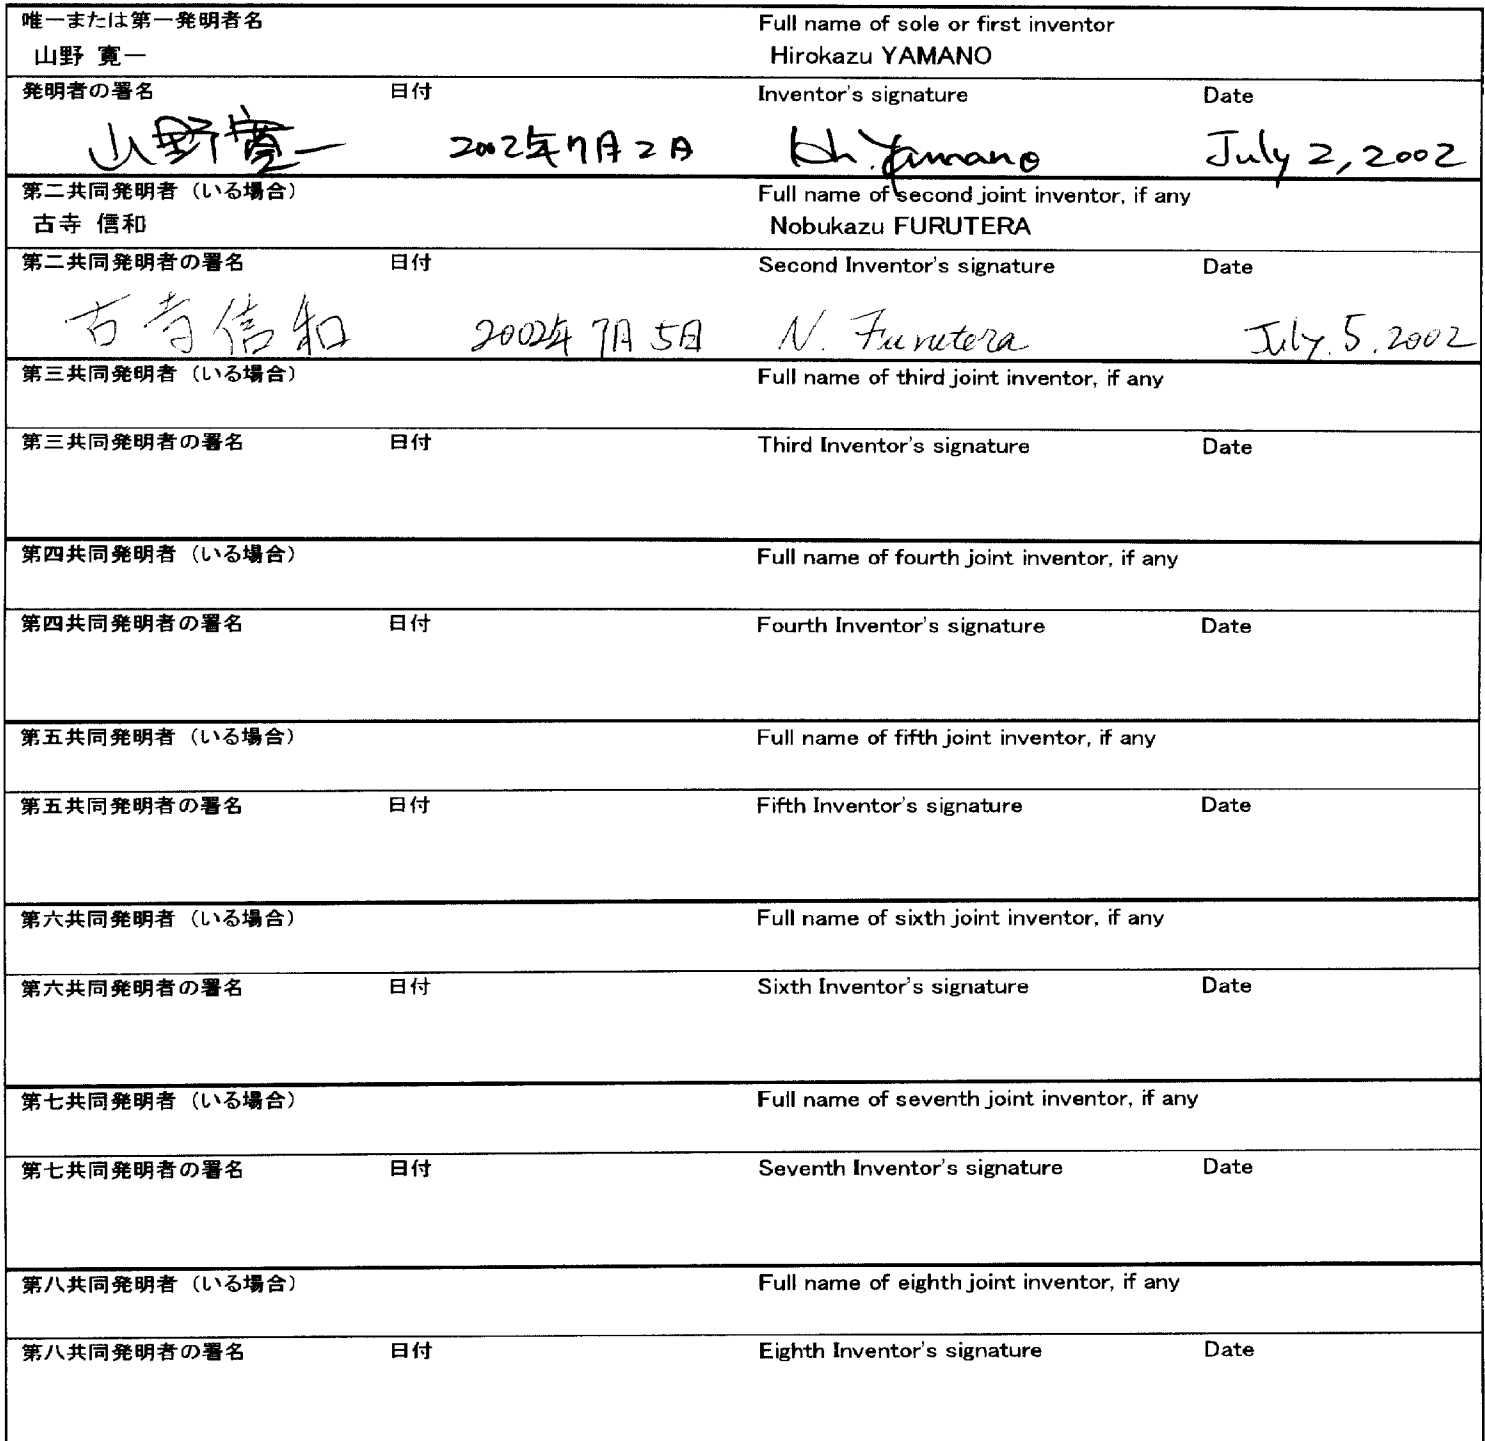 唯一または第一発明者名 Full name of sole or first inventor
山野 寛一 Hirokazu YAMANO
発明者の署名 日付 Inventor's signature Date
山野寛一 2002年7月2日 Yamano July 2, 2002
第二共同発明者（いる場合） Full name of second joint inventor, if any
古寺 信和 Nobukazu FURUTERA
第二共同発明者の署名 日付 Second Inventor's signature Date
古寺信和 2002年7月5日 N. Furutera July. 5. 2002
第三共同発明者（いる場合） Full name of third joint inventor, if any
第三共同発明者の署名 日付 Third Inventor's signature Date
第四共同発明者（いる場合） Full name of fourth joint inventor, if any
第四共同発明者の署名 日付 Fourth Inventor's signature Date
第五共同発明者（いる場合） Full name of fifth joint inventor, if any
第五共同発明者の署名 日付 Fifth Inventor's signature Date
第六共同発明者（いる場合） Full name of sixth joint inventor, if any
第六共同発明者の署名 日付 Sixth Inventor's signature Date
第七共同発明者（いる場合） Full name of seventh joint inventor, if any
第七共同発明者の署名 日付 Seventh Inventor's signature Date
第八共同発明者（いる場合） Full name of eighth joint inventor, if any
第八共同発明者の署名 日付 Eighth Inventor's signature Date